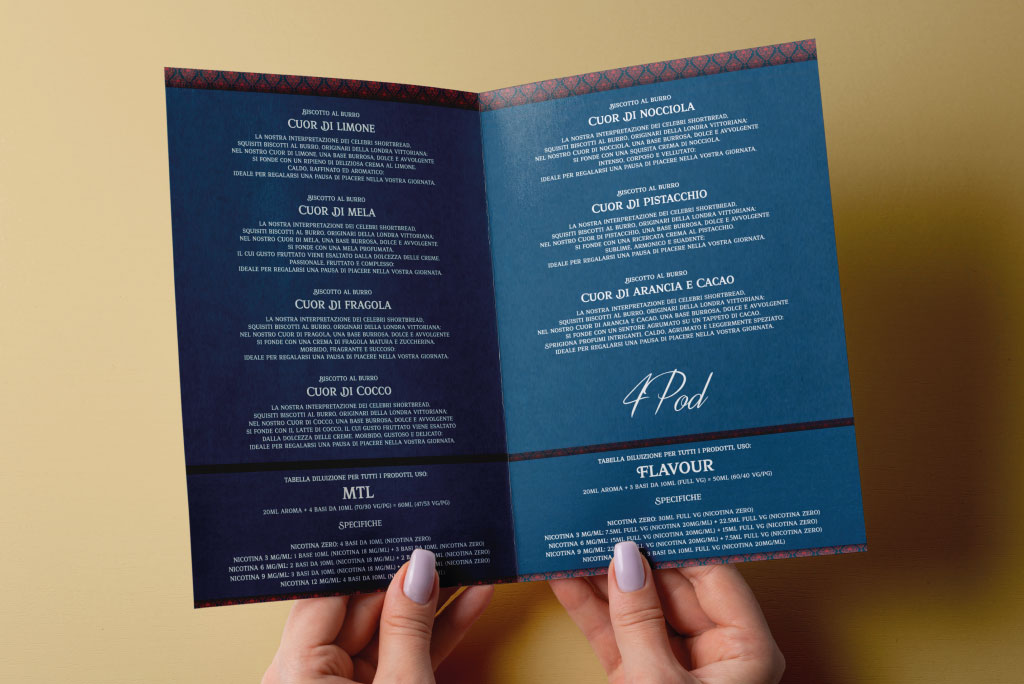 BISCOTTO AL BURRO
CUOR DI LIMONE
LA NOSTRA INTERPRETAZIONE DEI CELEBRI SHORTBREAD,
SQUISITI BISCOTTI AL BURRO, ORIGINARI DELLA LONDRA VITTORIANA:
NEL NOSTRO CUOR DI LIMONE, UNA BASE BURROSA, DOLCE E AVVOLGENTE
SI FONDE CON UN RIPIENO DI DELIZIOSA CREMA AL LIMONE.
CALDO, RAFFINATO ED AROMATICO:
IDEALE PER REGALARSI UNA PAUSA DI PIACERE NELLA VOSTRA GIORNATA.
BISCOTTO AL BURRO
CUOR DI MELA
LA NOSTRA INTERPRETAZIONE DEI CELEBRI SHORTBREAD,
SQUISITI BISCOTTI AL BURRO, ORIGINARI DELLA LONDRA VITTORIANA:
NEL NOSTRO CUOR DI MELA, UNA BASE BURROSA, DOLCE E AVVOLGENTE
SI FONDE CON UNA MELA PROFUMATA,
IL CUI GUSTO FRUTTATO VIENE ESALTATO DALLA DOLCEZZA DELLE CREME.
PASSIONALE, FRUTTATO E COMPLESSO:
IDEALE PER REGALARSI UNA PAUSA DI PIACERE NELLA VOSTRA GIORNATA.
BISCOTTO AL BURRO
CUOR DI FRAGOLA
LA NOSTRA INTERPRETAZIONE DEI CELEBRI SHORTBREAD,
SQUISITI BISCOTTI AL BURRO, ORIGINARI DELLA LONDRA VITTORIANA:
NEL NOSTRO CUOR DI FRAGOLA, UNA BASE BURROSA, DOLCE E AVVOLGENTE
SI FONDE CON UNA CREMA DI FRAGOLA MATURA E ZUCCHERINA.
MORBIDO, FRAGRANTE E SUCCOSO:
IDEALE PER REGALARSI UNA PAUSA DI PIACERE NELLA VOSTRA GIORNATA.
BISCOTTO AL BURRO
CUOR DI COCCO
LA NOSTRA INTERPRETAZIONE DEI CELEBRI SHORTBREAD,
SQUISITI BISCOTTI AL BURRO, ORIGINARI DELLA LONDRA VITTORIANA:
NEL NOSTRO CUOR DI COCCO, UNA BASE BURROSA, DOLCE E AVVOLGENTE
SI FONDE CON IL LATTE DI COCCO, IL CUI GUSTO FRUTTATO VIENE ESALTATO
DALLA DOLCEZZA DELLE CREME. MORBIDO, GUSTOSO E DELICATO:
IDEALE PER REGALARSI UNA PAUSA DI PIACERE NELLA VOSTRA GIORNATA.
TABELLA DILUIZIONE PER TUTTI I PRODOTTI, USO:
MTL
20ML AROMA + 4 BASI DA 10ML (70/30 VG/PG) = 60ML (47/53 VG/PG)
SPECIFICHE
NICOTINA ZERO: 4 BASI DA 10ML (NICOTINA ZERO)
NICOTINA 3 MG/ML: 1 BASE 10ML (NICOTINA 18 MG/ML) + 3 BASI DA 10ML (NICOTINA ZERO)
NICOTINA 6 MG/ML: 2 BASI DA 10ML (NICOTINA 18 MG/ML) + 2 (NICOTINA ZERO)
NICOTINA 9 MG/ML: 3 BASI DA 10ML (NICOTINA 18 MG/ML) + (NICOTINA ZERO)
NICOTINA 12 MG/ML: 4 BASI DA 10ML
BISCOTTO AL BURRO
CUOR DI NOCCIOLA
LA NOSTRA INTERPRETAZIONE DEI CELEBRI SHORTBREAD,
SQUISITI BISCOTTI AL BURRO, ORIGINARI DELLA LONDRA VITTORIANA:
NEL NOSTRO CUOR DI NOCCIOLA, UNA BASE BURROSA, DOLCE E AVVOLGENTE
SI FONDE CON UNA SQUISITA CREMA DI NOCCIOLA.
INTENSO, CORPOSO E VELLUTATO:
IDEALE PER REGALARSI UNA PAUSA DI PIACERE NELLA VOSTRA GIORNATA.
BISCOTTO AL BURRO
CUOR DI PISTACCHIO
LA NOSTRA INTERPRETAZIONE DEI CELEBRI SHORTBREAD,
SQUISITI BISCOTTI AL BURRO, ORIGINARI DELLA LONDRA VITTORIANA:
NEL NOSTRO CUOR DI PISTACCHIO, UNA BASE BURROSA, DOLCE E AVVOLGENTE
SI FONDE CON UNA RICERCATA CREMA AL PISTACCHIO.
SUBLIME, ARMONICO E SUADENTE:
IDEALE PER REGALARSI UNA PAUSA DI PIACERE NELLA VOSTRA GIORNATA.
BISCOTTO AL BURRO
CUOR DI ARANCIA E CACAO
LA NOSTRA INTERPRETAZIONE DEI CELEBRI SHORTBREAD,
SQUISITI BISCOTTI AL BURRO, ORIGINARI DELLA LONDRA VITTORIANA:
NEL NOSTRO CUOR DI ARANCIA E CACAO, UNA BASE BURROSA, DOLCE E AVVOLGENTE
SI FONDE CON UN SENTORE AGRUMATO SU UN TAPPETO DI CACAO.
SPRIGIONA PROFUMI INTRIGANTI. CALDO, AGRUMATO E LEGGERMENTE SPEZIATO:
IDEALE PER REGALARSI UNA PAUSA DI PIACERE NELLA VOSTRA GIORNATA.
4Pod
TABELLA DILUIZIONE PER TUTTI I PRODOTTI, USO:
FLAVOUR
20ML AROMA + 3 BASI DA 10ML (FULL VG) = 50ML (60/40 VG/PG)
SPECIFICHE
NICOTINA ZERO: 30ML FULL VG (NICOTINA ZERO)
NICOTINA 3 MG/ML: 7.5ML FULL VG (NICOTINA 20MG/ML) + 22.5ML FULL VG (NICOTINA ZERO)
NICOTINA 6 MG/ML: 15ML FULL VG (NICOTINA 20MG/ML) + 15ML FULL VG (NICOTINA ZERO)
NICOTINA 9 MG/ML: VG (NICOTINA 20MG/ML) + 7.5ML FULL VG (NICOTINA ZERO)
BASI DA 10ML FULL VG (NICOTINA 20MG/ML)